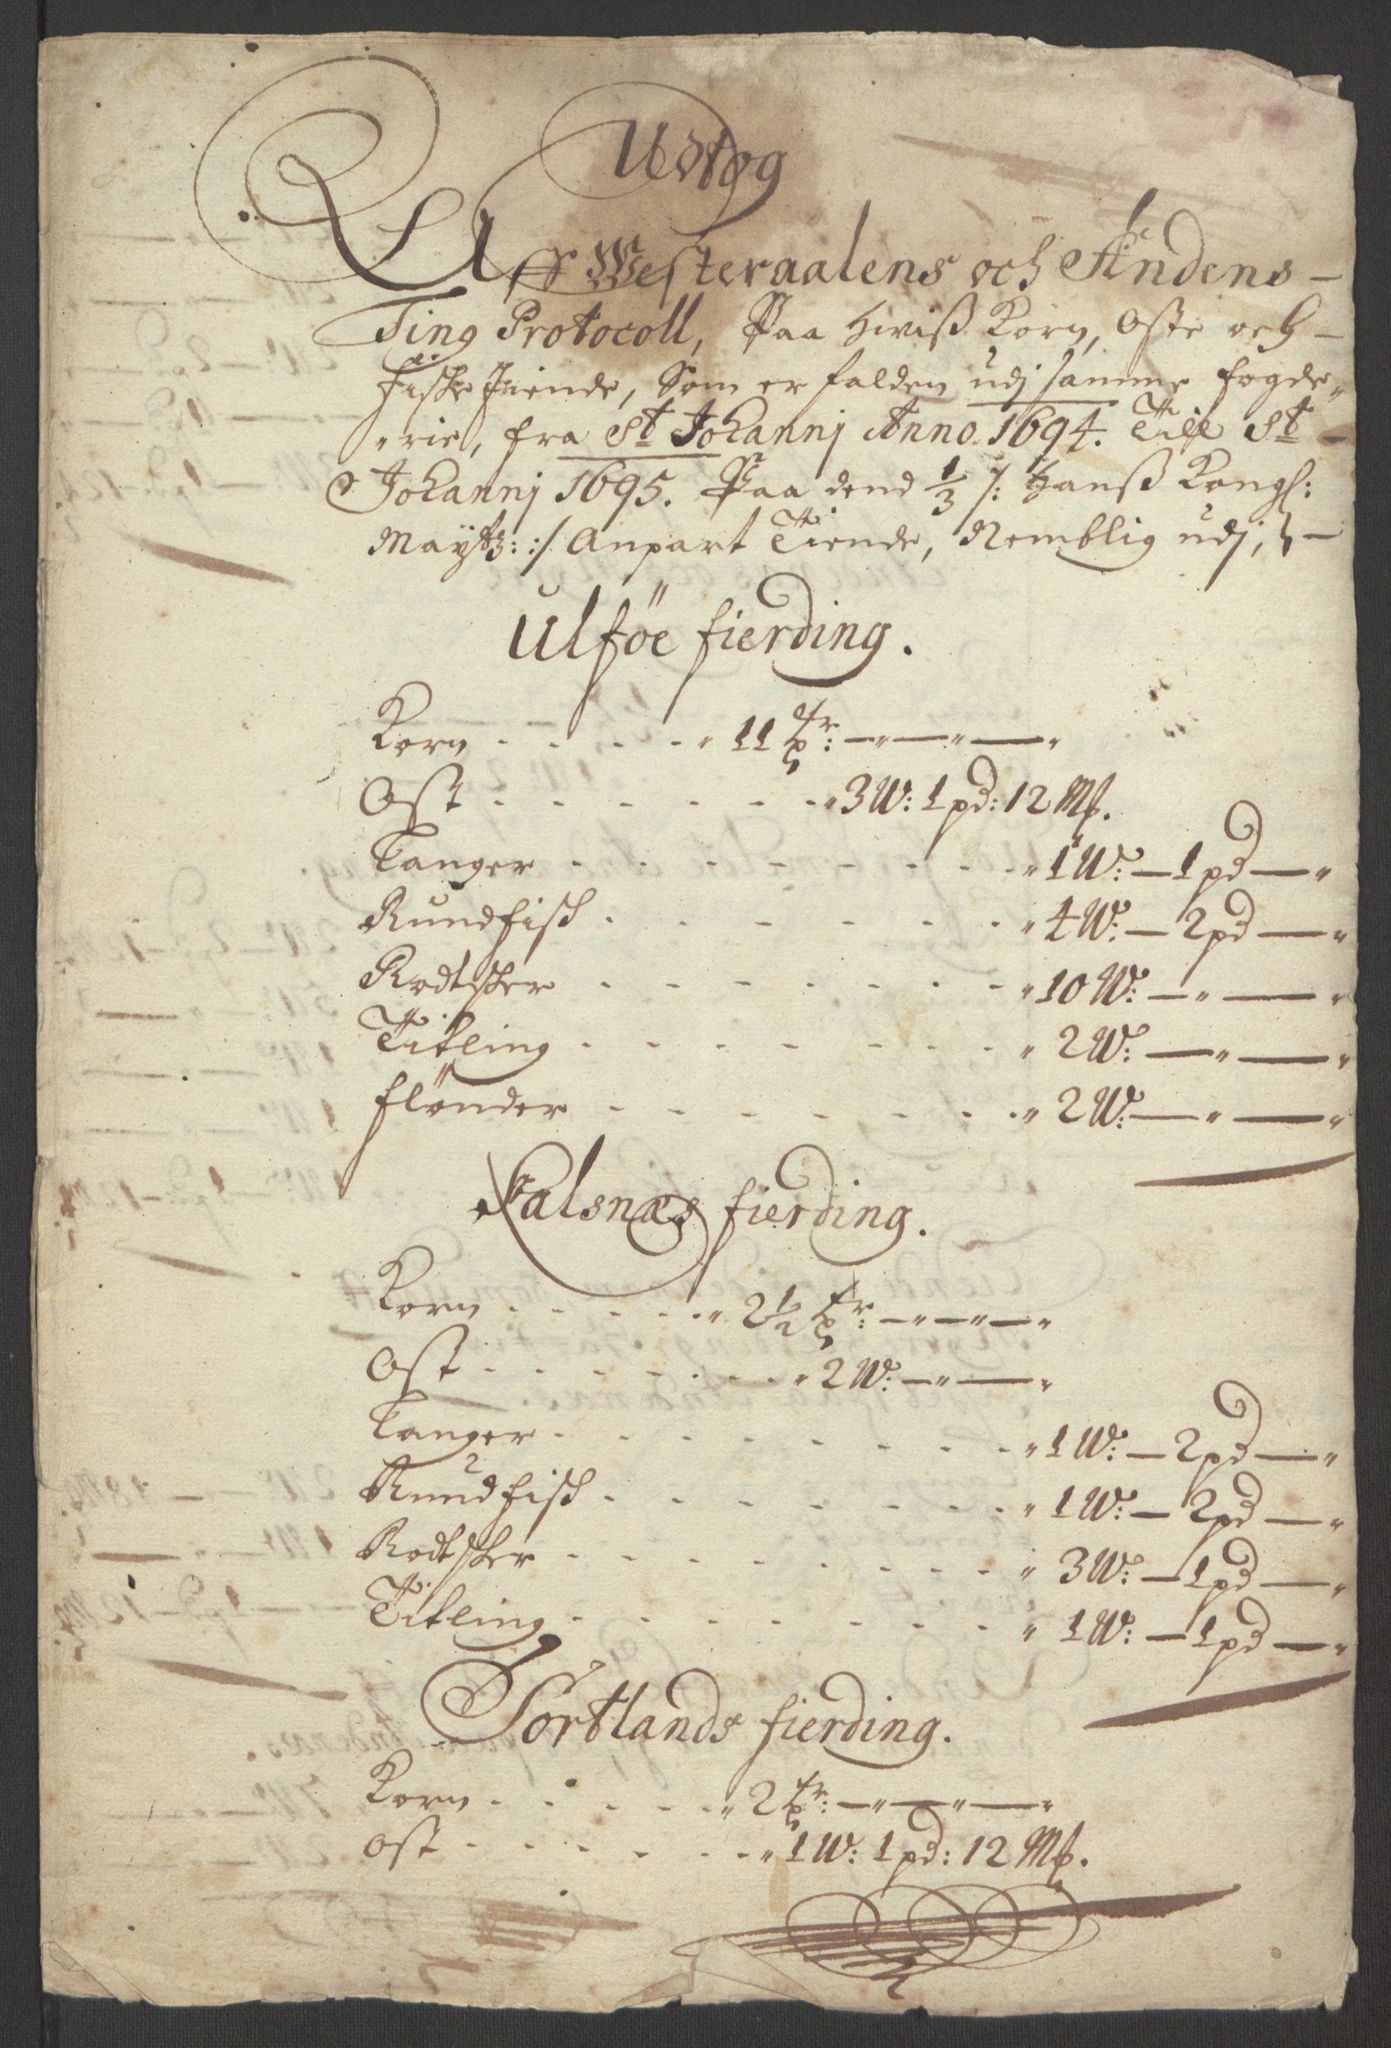 Udtog
Aff Westeraalens och Andens
Ting Protocoll, Paa hviß Korn, Oste och
fiske Tiende, Som er falden udj samme fogde-
rie, fra St Johannj Anno 1694. Till St
Johannj 1695. Paa dend 1/3 /: Hanß Kongl:
Maytz: :/ Anpart Tiende, Nemblig udj,
Ulföe fierding.
Korn . . . . . „ 11 tr: — „ — „ — „
Ost . . . . . . „ 3 W: 1 pd: 12 Mk.
Tanger . . . . . . . „ 1 W: — 1 pd — „
Rundfisk . . . . . . . „ 4 W: — 2 pd — „
Rodtsker . . . . . . . „ 10 W: — „ — „
Titling . . . . . . . „ 2 W: — „ — „
flönder . . . . . . . „ 2 W: — „ — „
Falsnæs fierding.
Korn . . . . . „ 2 1/2 tr: — „ — „ — „
Ost . . . . . . „ 2 W: — „ — „
Tanger . . . . . . . „ 1 W: — 2 pd — „
Rundfisk . . . . . . . „ 1 W: — 2 pd — „
Rodtsker . . . . . . . „ 3 W: — 1 pd — „
Titling . . . . . . . „ 1 W: — 1 pd — „
Sortlands fierding.
Korn . . . . . „ 2 tr: — „ — „ — „
Ost . . . . . . „ 1 W: 1 pd: 12 Mk.